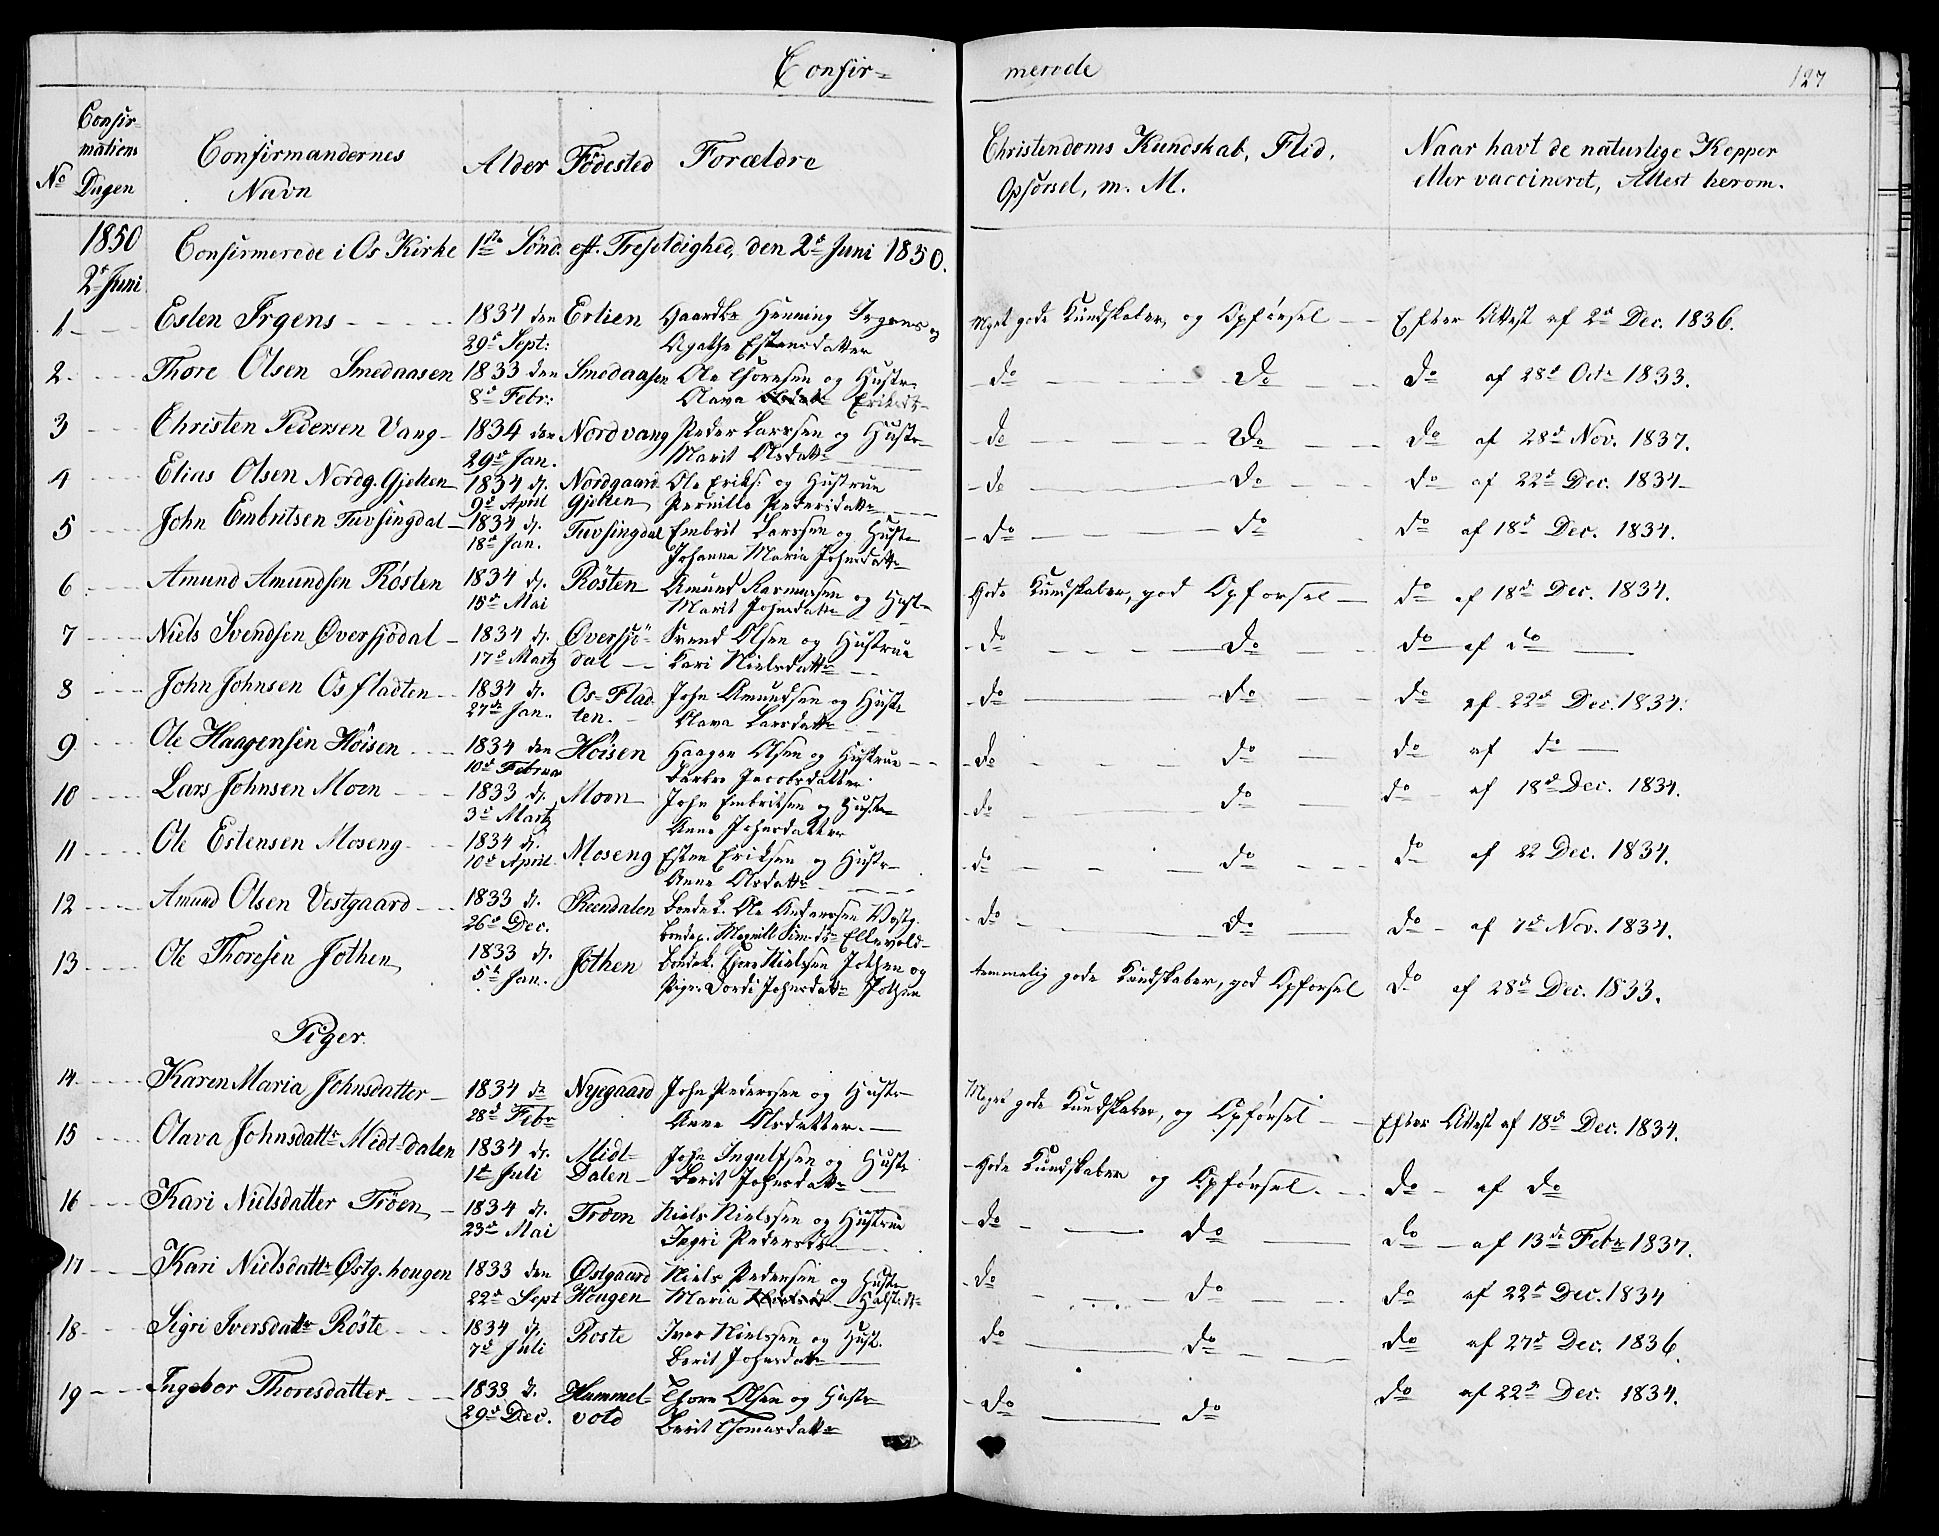 Confir= merede 127
No Confir-mations Dagen Confirmandernes Navn Alder Födested Forældre Christendoms Kundskab, Flid, Opförsel, m. M. Naar havt de naturlige Kopper eller vaccineret, Attest herom.
1850 2d Juni Confirmerede i Os Kirke 1ste Sönd. eft. Trefoldighed, den 2d Juni 1850.
1 Esten Irgens 1834 den 29d Sept: Estien Henning Irgens og Agathe Estensdatter Meget gode Kundskaber og Opförsel Efter Attest af 2d Dec. 1836.
2 Thore Olsen Smedaasen 1833 den 8d Febr: Smedaasen Ole Thoresen og Hustr. Olava Eriksdt. do do do af 28d Octr 1833.
3 Christen Pedersen Vang 1834 den 29d Jan. Nordvang Peder Larssen og Hustr. Marit Olsdattr do do do af 28d Nov. 1837.
4 Elias Olsen Nordg. Gjelten 1834 d. 9d April Nordgaard Gjelten Ole Eriks: og Hustrue Pernille Pedersdattr do do do af 22d Dec. 1834
5 John Embritsen Tufsingdal 1834 d. 18d Jan. Tufsingdal Embrit Larssen og Hustr Johanna Maria Johnsdattr do do do af 18d Dec. 1834.
6 Amund Amundsen Rösten 1834 d. 15d Mai Rösten Amund Rasmussen og Hustr Marit Johnsdattr Gode Kundskaber, god Opförsel do af 18d Dec. 1834.
7 Niels Svendsen Øversjödal 1834 d. 17d Martz Øversjö-dal Svend Olsen og Hustrue Kari Nielsdattr do do do af do
8 John Johnsen Os fladten 1834 d. 27d Jan. Os-Fladten. John Amundsen og Hustr Olava Larsdattr do do do af 22d Dec. 1834.
9 Ole Haagensen Höisen 1834 den 10d Februar Höisen Haagen Olsen og Hustrue Barbro Jacobsdatter do do do af do
10 Lars Johnsen Moen 1833 d. 3d Martz Moen John Embriksen og Hustr Anne Johnsdatter do do do af 18d Dec. 1834.
11 Ole Estensen Moseng 1834 d. 10d April Moseng Esten Eriksen og Hustr Anne Olsdattr do do do af 22 Dec. 1834.
12 Amund Olsen Vestgaard 1833 d. 26d Dec. Reendalen Bondek. Ole Anderssen Vestg. Bondep. Magnill Simdtr Ellevold do do do af 7d Nov. 1834.
13 Ole Thoresen Jothen 1833 d. 5d Jan. Jothen Bondek. Thore Nielssen Jothen og Pigen Dordi Johnsdattr Jothen temmelig gode Kundskaber, god Opförsel do af 28d Dec. 1833.
Piger.
14 Karen Maria Johnsdatter 1834 d. 28d Febr Nyegaard John Pederssen og Hustr Anne Olsdatter. Meget gode Kundskaber, og Opförsel Efter Attest af 18d Dec. 1834.
15 Olava Johnsdattr Midt-dalen 1834 d. 1d Juli Midt-Dalen John Ingulfsen og Hustr Berit Johnsdattr Gode Kundskaber og Opförsel. do af do
16 Kari Nielsdatter Tröen 1834 d. 23d Mai Tröen Niels Nielssen og Hustrue Ingri Pedersdtr do do do af 13de Febr 1837.
17 Kari Nielsdattr Østg. hougen 1833 den 22d Sept Østgaard Hougen Niels Pedersen og Hustr Maria Halst.dtr do do do af 22d Dec. 1834
18 Sigri Iversdattr Röste 1834 d. 7d Juli Roste Iver Nielssen og Hust. Berit Johnsdattr do do do af 27d Dec. 1836.
19 Ingebor Thoresdatter 1833 d. 29d Dec. Hummel-vold Thore Olsen og Hustr Berit Thomasdattr do do do af 22d Dec. 1834.